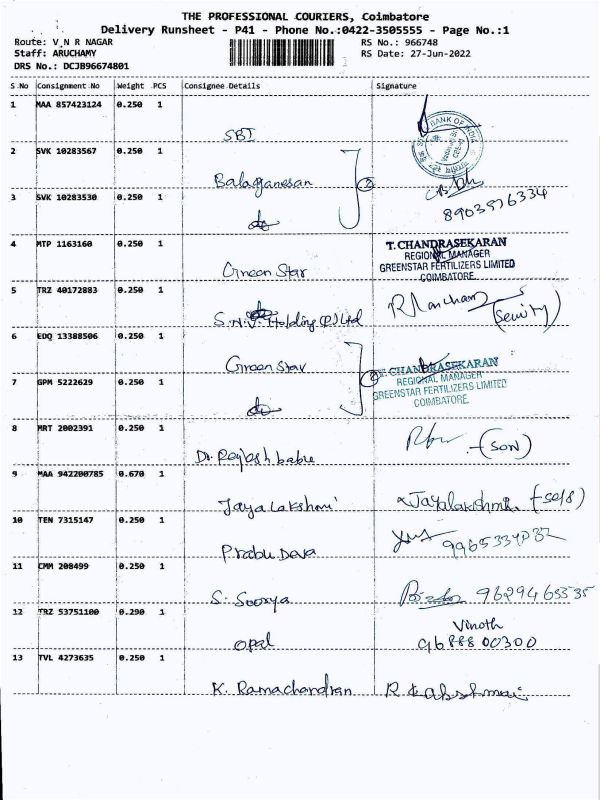 THE PROFESSIONAL COURIERS, Coimbatore
Delivery Runsheet - P41 - Phone No.:0422-3505555 - Page No.:1
Route: V N R NAGAR RS No.: 966748
Staff: ARUCHAMY RS Date: 27-Jun-2022
DRS No.: DCJB96674801
S.No Consignment No Weight PCS Consignee Details Signature
1 MAA 857423124 0.250 1
SBI
BANK OF INDIA
2 SVK 10283567 0.250 1
Balaganesan (2)
3 SVK 10283530 0.250 1
8903576334
do
4 MTP 1163160 0.250 1
T. CHANDRASEKARAN
REGIONAL MANAGER
GREENSTAR FERTILIZERS LIMITED
COIMBATORE.
Green Star
5 TRZ 40172883 0.250 1
S.N.V. Holding (P) Ltd (Seurity)
6 EDQ 13388506 0.250 1
Green Star (2)
T. CHANDRASEKARAN
REGIONAL MANAGER
GREENSTAR FERTILIZERS LIMITED
COIMBATORE.
7 GPM 5222629 0.250 1
do
8 MRT 2002391 0.250 1
Dr. Rajesh babu (SON)
9 MAA 942200785 0.670 1
Jaya Lakshmi Jayalakshmi (self)
10 TEN 7315147 0.250 1
Prabu Deva
11 CMM 208499 0.250 1
S. Soorya 9629465535
12 TRZ 53751100 0.290 1
Vinoth
opal 9688800300
13 TVL 4273635 0.250 1
K. Ramachandran